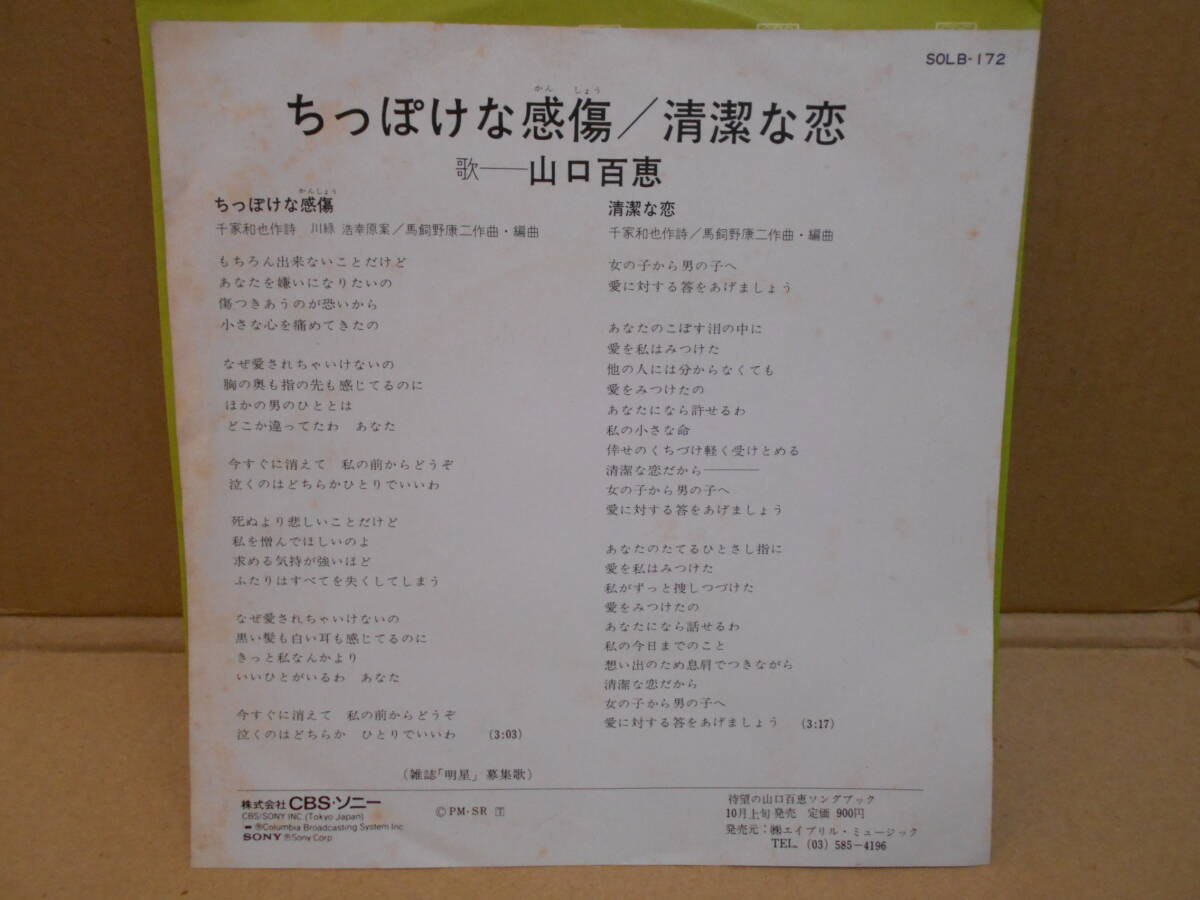 SOLB-172
かん しょう
ちっぽけな感傷/清潔な恋
歌──山口百恵
かんしょう
ちっぽけな感傷
千家和也作詩 川緑 浩幸原案/馬飼野康二作曲・編曲
もちろん出来ないことだけど
あなたを嫌いになりたいの
傷つきあうのが恐いから
小さな心を痛めてきたの
なぜ愛されちゃいけないの
胸の奥も指の先も感じてるのに
ほかの男のひととは
どこか違ってたわ あなた
今すぐに消えて 私の前からどうぞ
泣くのはどちらかひとりでいいわ
死ぬより悲しいことだけど
私を憎んでほしいのよ
求める気持が強いほど
ふたりはすべてを失くしてしまう
なぜ愛されちゃいけないの
黒い髪も白い耳も感じてるのに
きっと私なんかより
いいひとがいるわ あなた
今すぐに消えて 私の前からどうぞ
泣くのはどちらか ひとりでいいわ (3:03)
(雑誌「明星」募集歌)
清潔な恋
千家和也作詩/馬飼野康二作曲・編曲
女の子から男の子へ
愛に対する答をあげましょう
あなたのこぼす泪の中に
愛を私はみつけた
他の人には分からなくても
愛をみつけたの
あなたになら許せるわ
私の小さな命
倖せのくちづけ軽く受けとめる
清潔な恋だから────
女の子から男の子へ
愛に対する答をあげましょう
あなたのたてるひとさし指に
愛を私はみつけた
私がずっと捜しつづけた
愛をみつけたの
あなたになら話せるわ
私の今日までのこと
想い出のため息肩でつきながら
清潔な恋だから
女の子から男の子へ
愛に対する答をあげましょう (3:17)
株式会社CBS・ソニー
CBS/SONY INC.(Tokyo Japan)
®Columbia Broadcasting System Inc
SONY ®Sony Corp
ⒸPM・SR
待望の山口百恵ソングブック
10月上旬発売 定価 900円
発売元:㈱エイプリル・ミュージック
TEL. (03) 585-4196